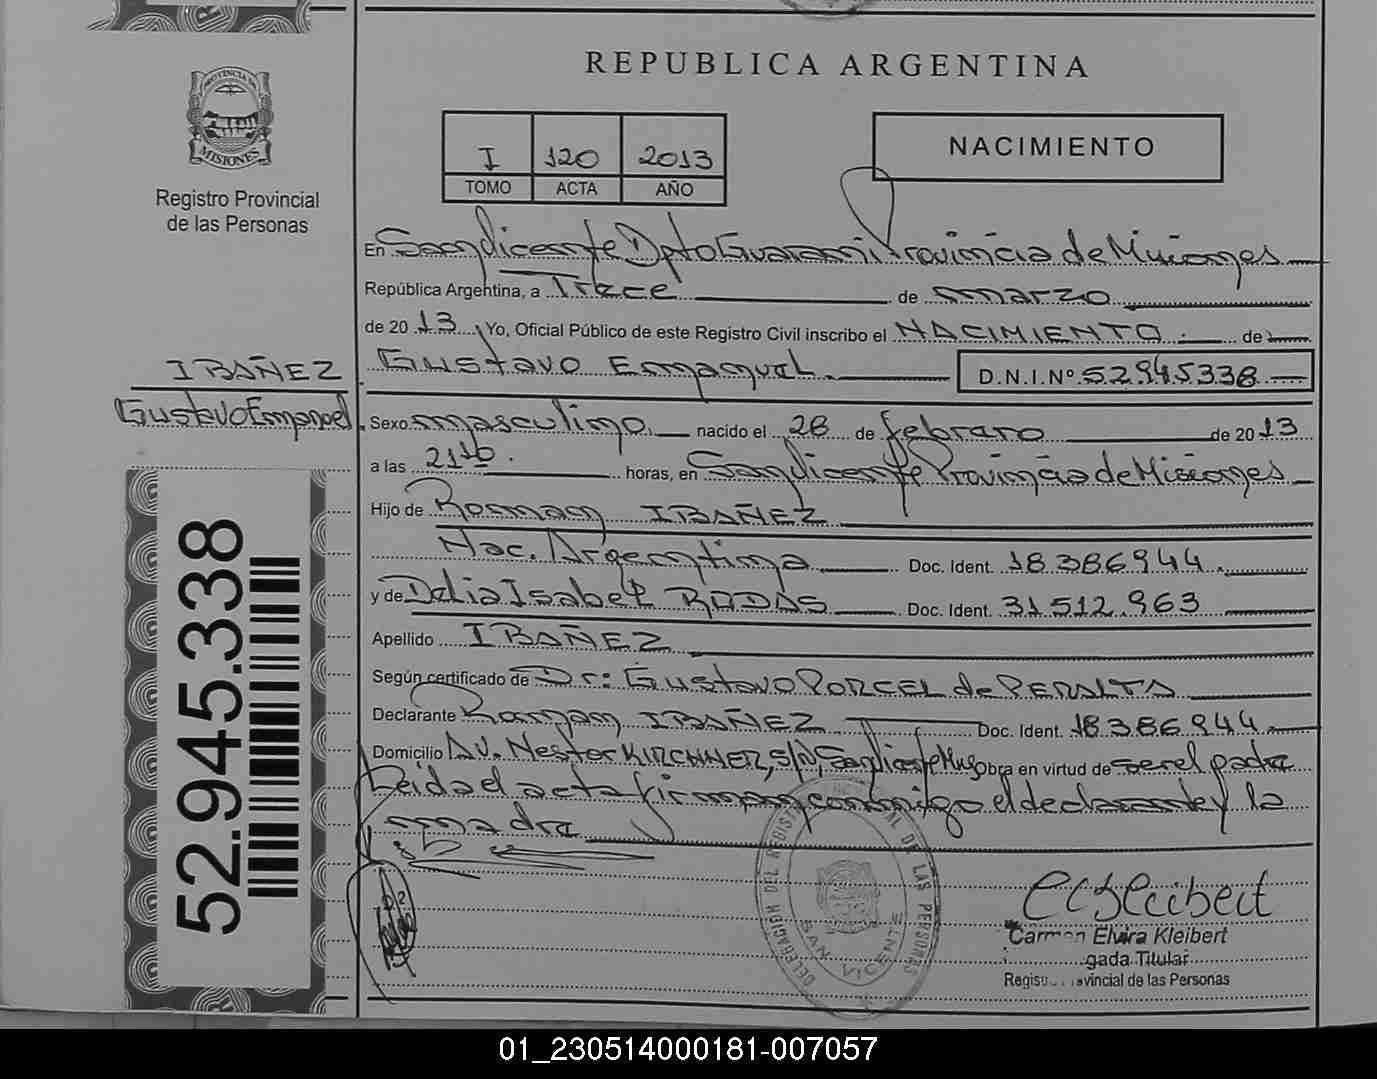 REPUBLICA ARGENTINA
PROVINCIA DE
MISIONES
Registro Provincial
de las Personas
I 120 2013
TOMO ACTA AÑO
NACIMIENTO
En San Vicente Dpto Guarani Provincia de Misiones
República Argentina, a Trece de marzo
de 20 13, Yo, Oficial Público de este Registro Civil inscribo el NACIMIENTO de
Gustavo Emanuel. D.N.I.Nº 52.945.338
IBAÑEZ
Gustavo Emanuel
Sexo masculino nacido el 28 de febrero de 20 13
a las 21 horas, en San Vicente Provincia de Misiones
Hijo de Roman IBAÑEZ
Nac. Argentina Doc. Ident. 18.386.944.
y de Delia Isabel RODAS Doc. Ident. 31.512.963
Apellido IBAÑEZ
Según certificado de Dr: Gustavo PORCEL de PERALTA
Declarante Roman IBAÑEZ Doc. Ident. 18.386.944
Domicilio AV. Nestor KIRCHNER, S/N, San Vicente Mnes obra en virtud de ser el padre
Leida el acta firman conmigo el declarante y la
madre
52.945.338
DELEGACION DEL REGISTRO PROVINCIAL DE LAS PERSONAS
SAN VICENTE
Carmen Elvira Kleibert
gada Titular
Regist vincial de las Personas
01_230514000181-007057